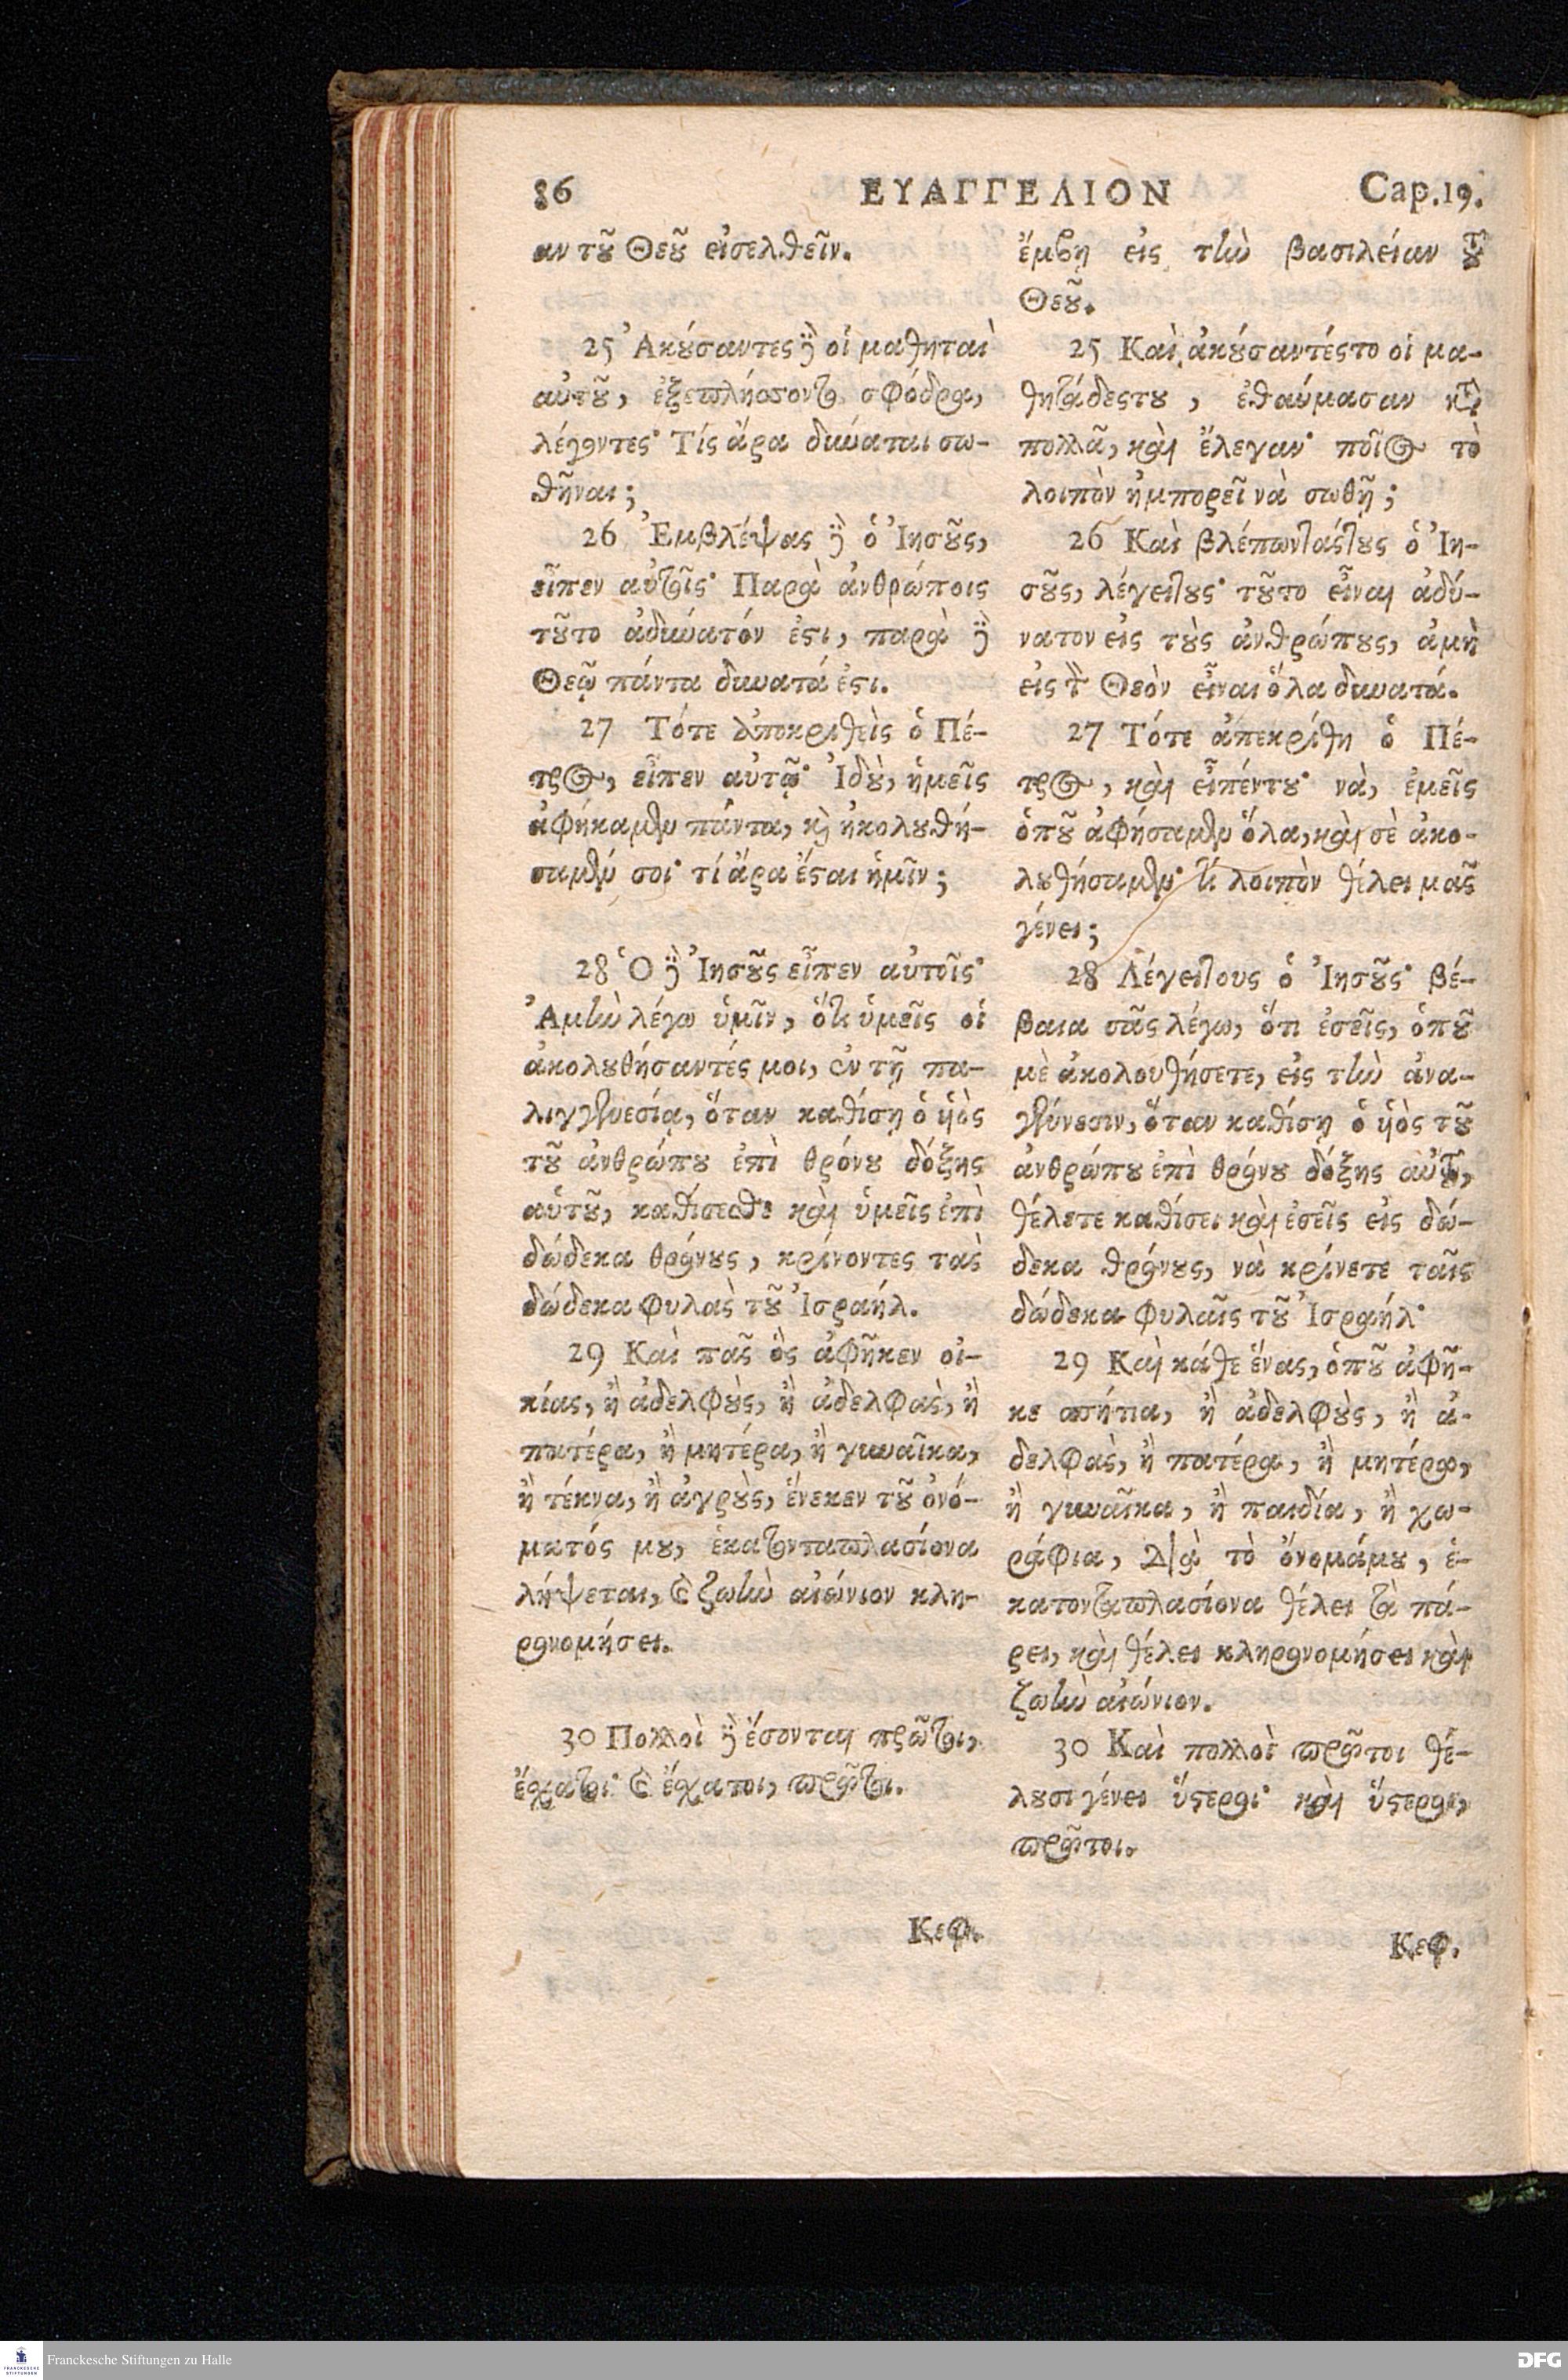 86 ΕΥΑΓΓΕΛΙΟΝ Cap.19.
αν τȣ͂ Θεȣ͂ εἰσελθεῖν.
25 Ἀκȣ́σαντες δὲ οἱ μαθηταὶ
αὐτȣ͂, ἐξεπλήσσοντο σφόδρα,
λέγοντες· Τίς ἄρα δύναται σω-
θῆναι;
26 Ἐμβλέψας δὲ ὁ Ἰησȣ͂ς,
εἶπεν αὐτοῖς· Παρὰ ἀνθρώποις
τȣ͂το ἀδύνατόν ἐϛι, παρὰ δὲ
Θεῷ πάντα δυνατά ἐϛι.
27 Τότε ἀποκριθεὶς ὁ Πέ-
τρος, εἶπεν αὐτῷ· Ἰδȣ̀, ἡμεῖς
ἀφήκαμεν πάντα, κὶ ἠκολȣθή-
σαμέν σοι· τί ἄρα ἔϛαι ἡμῖν;
28 Ὁ δὲ Ἰησȣ͂ς εἶπεν αὐτοῖς·
Ἀμὴν λέγω ὑμῖν, ὅτι ὑμεῖς οἱ
ἀκολȣθήσαντές μοι, ἐν τῇ πα-
λιγγενεσίᾳ, ὅταν καθίσῃ ὁ ὑιὸς
τȣ͂ ἀνθρώπȣ ἐπὶ θρόνȣ δόξης
αὑτȣ͂, καθίσεσθε καὶ ὑμεῖς ἐπὶ
δώδεκα θρόνȣς, κρίνοντες τὰς
δώδεκα φυλὰς τȣ͂ Ἰσραήλ.
29 Καὶ πᾶς ὃς ἀφῆκεν οἰ-
κίας, ἢ ἀδελφȣ̀ς, ἢ ἀδελφὰς, ἢ
πατέρα, ἢ μητέρα, ἢ γυναῖκα,
ἢ τέκνα, ἢ ἀγρȣ̀ς, ἕνεκεν τȣ͂ ὀνό-
ματός μȣ, ἑκατονταπλασίονα
λήψεται, καὶ ζωὴν αἰώνιον κλη-
ρονομήσει.
30 Πολλοὶ δὲ ἔσονται πρῶτοι,
ἔσχατοι· καὶ ἔσχατοι, πρῶτοι.
Κεφ.
ἔμβῃ εἰς τὴν βασιλείαν τȣ͂
Θεȣ͂.
25 Καὶ ἀκȣ́σαντέςτο οἱ μα-
θητάδεςτȣ, ἐθαύμασαν κατὰ
πολλᾶ, καὶ ἔλεγαν· ποῖος τὸ
λοιπὸν ἠμπορεῖ νὰ σωθῇ;
26 Καὶ βλέπωντάςτȣς ὁ Ἰη-
σȣ͂ς, λέγειτȣς· τȣ͂το εἶναι ἀδύ-
νατον εἰς τȣ̀ς ἀνθρώπȣς, ἀμὴ
εἰς τὸν Θεὸν εἶναι ὅλα δυνατά.
27 Τότε ἀπεκρίθη ὁ Πέ-
τρος, καὶ εἶπέντȣ· νὰ, ἐμεῖς
ὁπȣ͂ ἀφήσαμεν ὅλα, καὶ σὲ ἀκο-
λȣθήσαμεν· τί λοιπὸν θέλει μᾶς
γένει;
28 Λέγειτους ὁ Ἰησȣ͂ς· βέ-
βαια σᾶς λέγω, ὅτι ἐσεῖς, ὁπȣ͂
μὲ ἀκολουθήσετε, εἰς τὴν ἀνα-
γέννεσιν, ὅταν καθίσῃ ὁ ὑιὸς τȣ͂
ἀνθρώπȣ ἐπὶ θρόνȣ δόξης αὑτȣ͂,
θέλετε καθίσει καὶ ἐσεῖς εἰς δώ-
δεκα θρόνȣς, νὰ κρίνετε ταῖς
δώδεκα φυλαῖς τȣ͂ Ἰσραήλ·
29 Καὶ κάθε ἕνας, ὁπȣ͂ ἀφῆ-
κε σπήτια, ἢ ἀδελφȣ̀ς, ἢ ἀ-
δελφὰς, ἢ πατέρα, ἢ μητέρα,
ἢ γυναῖκα, ἢ παιδία, ἢ χω-
ράφια, διὰ τὸ ὄνομάμȣ, ἑ-
κατονταπλασίονα θέλει τὰ πά-
ρει, καὶ θέλει κληρονομήσει καὶ
ζωὴν αἰώνιον.
30 Καὶ πολλοὶ πρῶτοι θέ-
λȣσι γένει ὕϛεροι· καὶ ὕϛεροι,
πρῶτοι.
Κεφ.
FRANCKESCHE STIFTUNGEN
Franckesche Stiftungen zu Halle
DFG